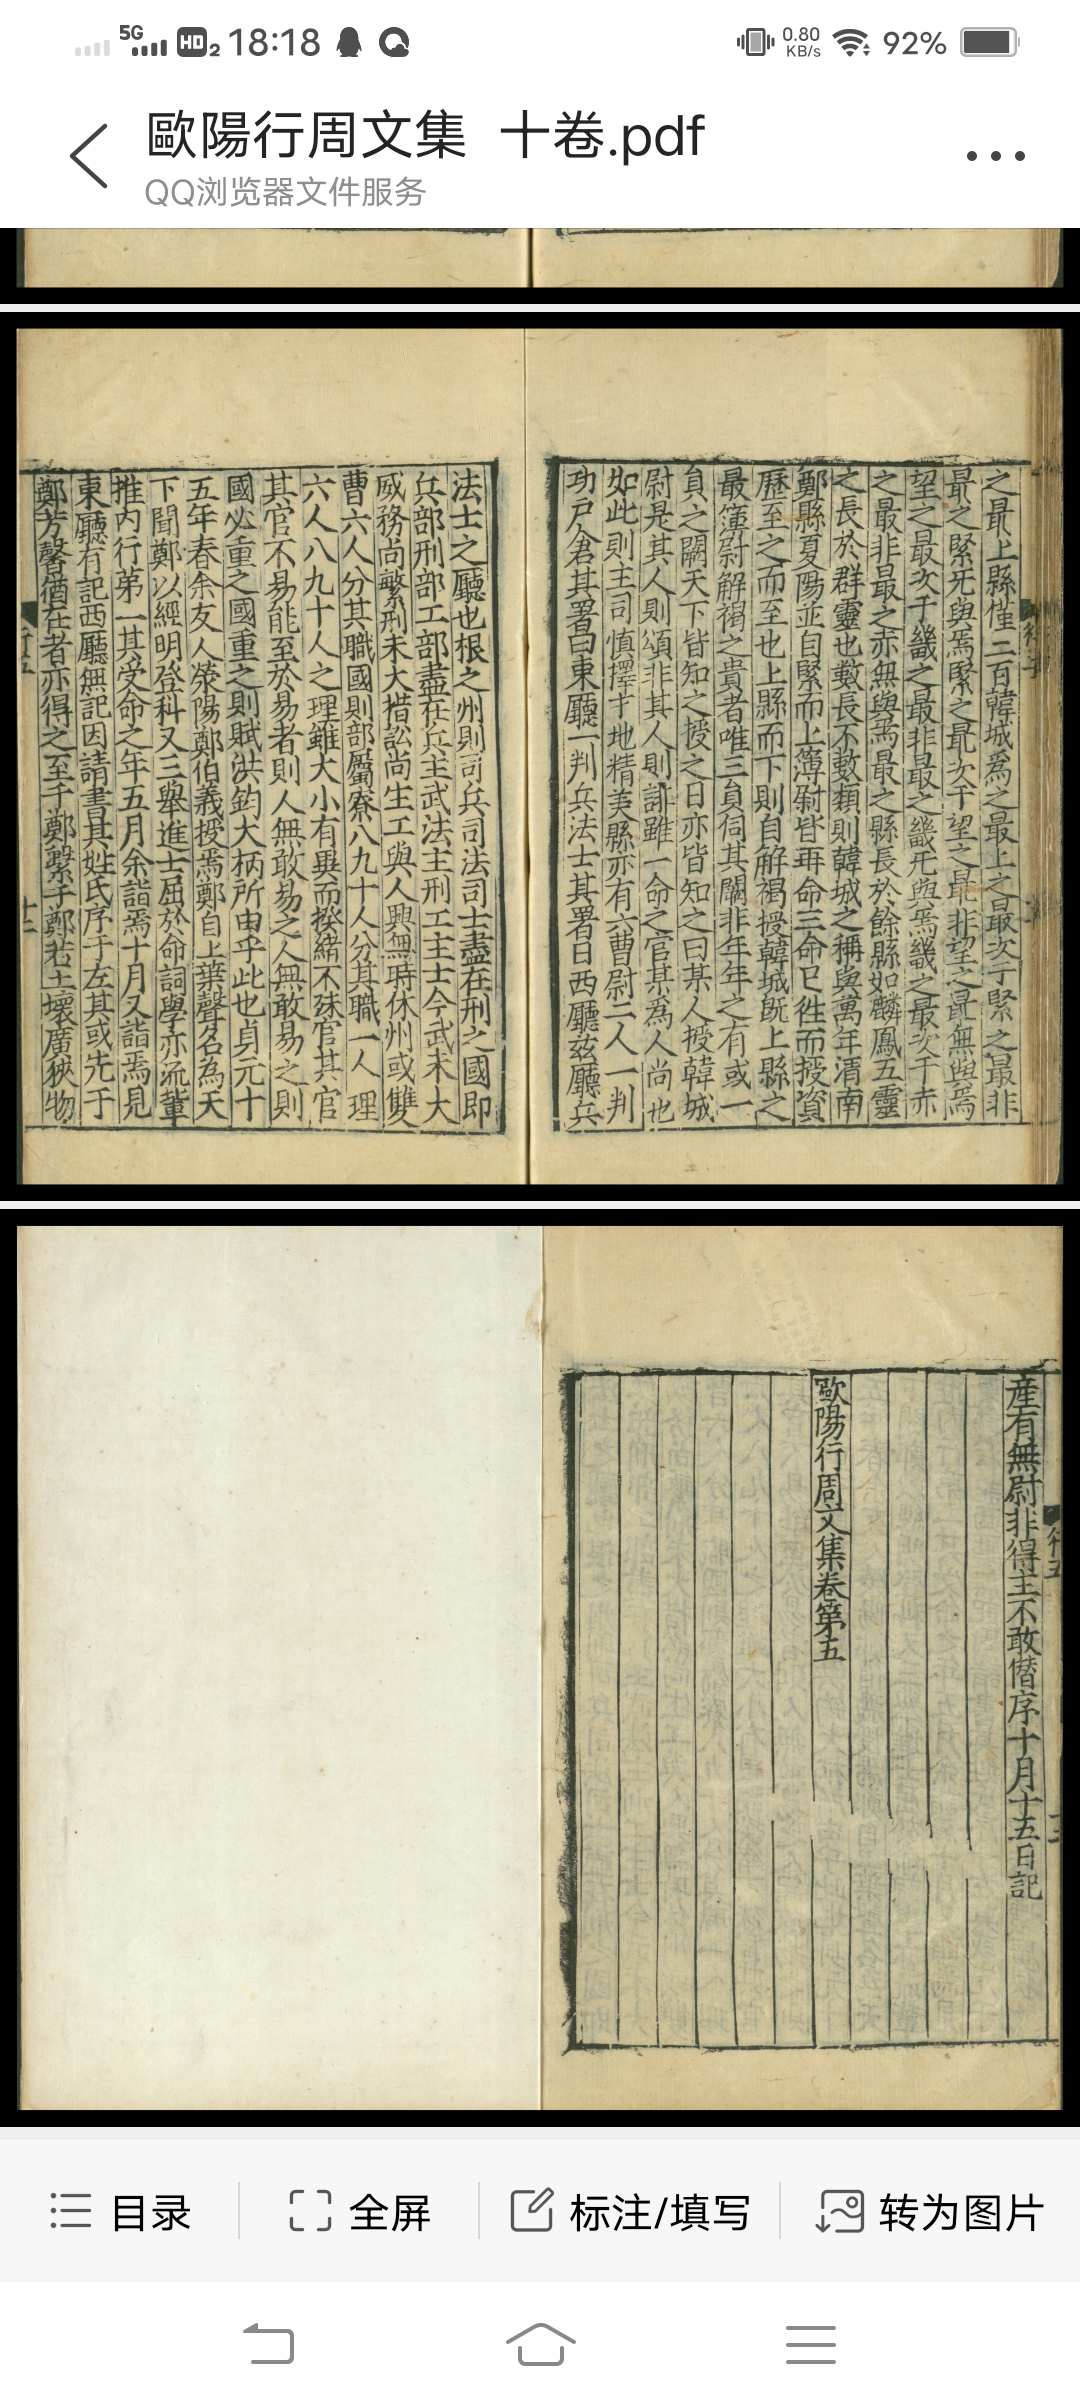 5G
HD 2 18:18
0.80
KB/s
92%
歐陽行周文集 十卷.pdf
QQ浏览器文件服务
之最上縣惟二百韓城爲之最上之最次于緊之最非
最之緊旡與焉緊之最次于望之最非望之最無與焉
望之最次于畿之最非最之畿旡與焉畿之最次于赤
之最非最之赤無與焉最之縣長於餘縣如麟鳳五靈
之長於群靈也數長不數類則韓城之稱與萬年清南
鄭縣夏陽並自緊而上簿尉皆再命三命巳徃而授資
歷至之而至也上縣而下則自解褐授韓城旣上縣之
最簿尉解褐之貴者唯三負伺其闕非年年之有或一
負之闕天下皆知之授之日亦皆知之曰某人授韓城
尉是其人則頌非其人則誹雖一命之官某爲人尚也
如此則主司慎擇才地精美縣亦有六曹尉二人一判
功戸倉其署曰東廳一判兵法士其署曰西廳兹廳兵
法士之廳也根之州則司兵司法司士盡在刑之國即
兵部刑部工部盡在兵主武法主刑工主士今武未大
威務尚繁刑未大措訟尚生工與人興無時休州或雙
曹六人分其職國則部屬寮八九十人分其職一人理
六人八九十人之理雖大小有異而揆緒不殊官其官
其官不易能至於易者則人無敢易之人無敢易之則
國必重之國重之則賦洪鈞大柄所由乎此也貞元十
五年春余友人滎陽鄭伯義授焉鄭自上葉聲名為天
下聞鄭以經明登科又三舉進士屈於命詞學亦流輩
推內行第一其受命之年五月余詣焉十月又詣焉見
東廳有記西廳無記因請書其姓氏序于左其或先于
鄭芳馨猶在者亦得之至于鄭繫于鄭若土壤廣狹物
産有無尉非得主不敢僣序十月十五日記
歐陽行周文集卷第五
目录
全屏
标注/填写
转为图片